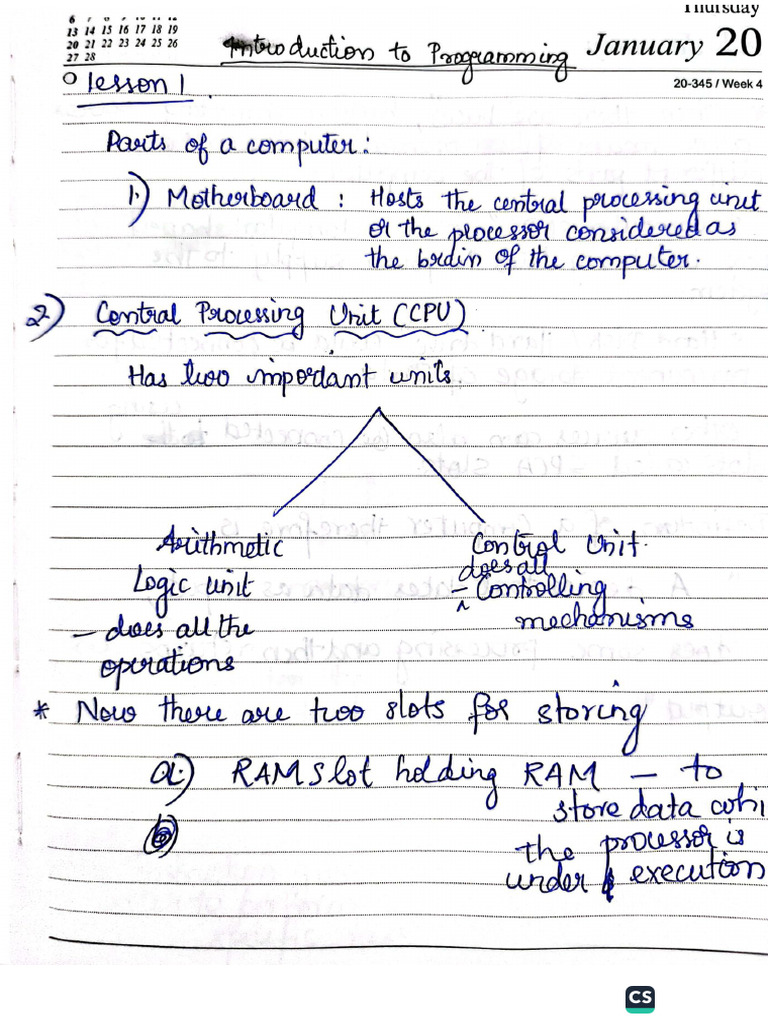 Thursday
6 7 8 9 10 11 12
13 14 15 16 17 18 19
20 21 22 23 24 25 26
27 28
Introduction to Programming
January 20
20-345 / Week 4
Lesson 1.
Parts of a computer:
1.) Motherboard : Hosts the central processing unit
or the processor considered as
the brain of the computer.
2.) Central Processing Unit (CPU)
Has two important units
Arithmetic
Logic unit
- does all the
operations
Control Unit.
does all
- ^ Controlling
mechanisms
* Now there are two slots for storing
a.) RAM Slot holding RAM - to
store data whi
the processor is
under execution
CS